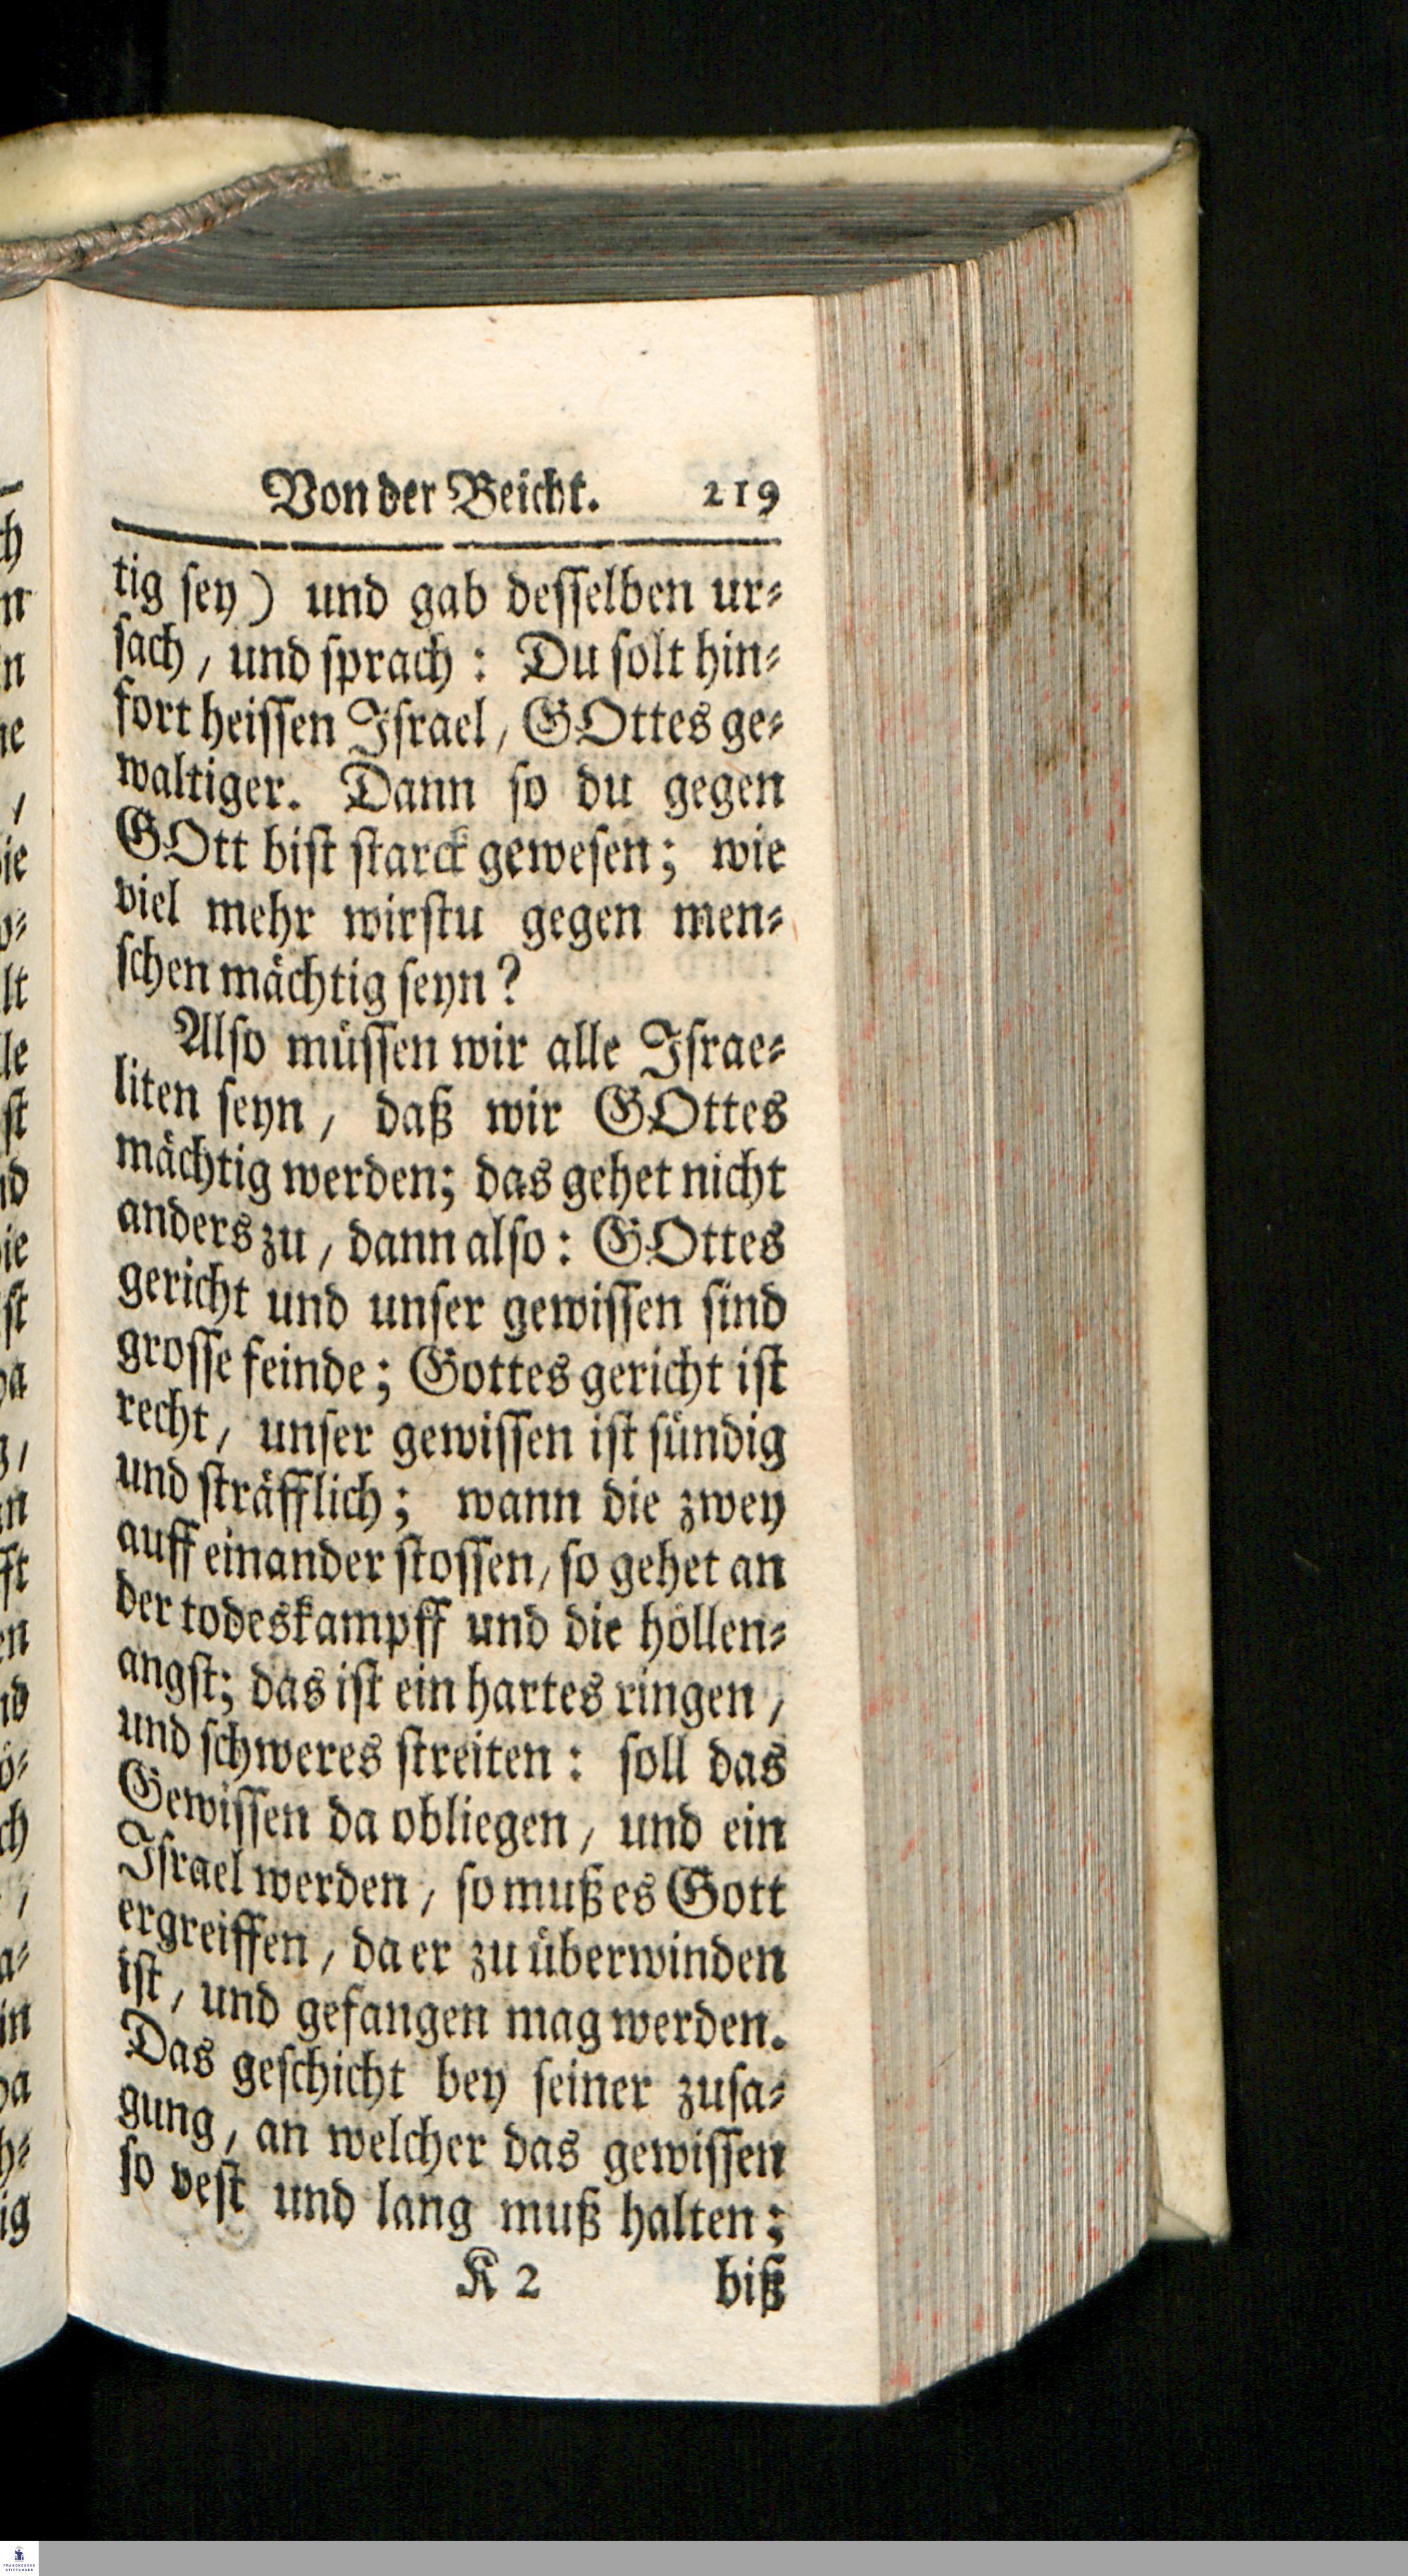 Von der Beicht. 219
tig ſey) und gab desſelben ur⸗
ſach, und ſprach: Du ſolt hin⸗
fort heiſſen Iſrael, GOttes ge⸗
waltiger. Dann ſo du gegen
GOtt biſt ſtarck geweſen; wie
viel mehr wirſtu gegen men⸗
ſchen mächtig ſeyn?
Alſo müſſen wir alle Iſrae⸗
liten ſeyn, daß wir GOttes
mächtig werden; das gehet nicht
anders zu, dann alſo: GOttes
gericht und unſer gewiſſen ſind
groſſe feinde; Gottes gericht iſt
recht, unſer gewiſſen iſt ſündig
und ſträfflich; wann die zwey
auff einander ſtoſſen, ſo gehet an
der todeskampff und die höllen⸗
angſt; das iſt ein hartes ringen,
und ſchweres ſtreiten: ſoll das
Gewiſſen da obliegen, und ein
Iſrael werden, ſo muß es Gott
ergreiffen, da er zu überwinden
iſt, und gefangen mag werden.
Das geſchicht bey ſeiner zuſa⸗
gung, an welcher das gewiſſen
ſo veſt und lang muß halten;
K 2 biß